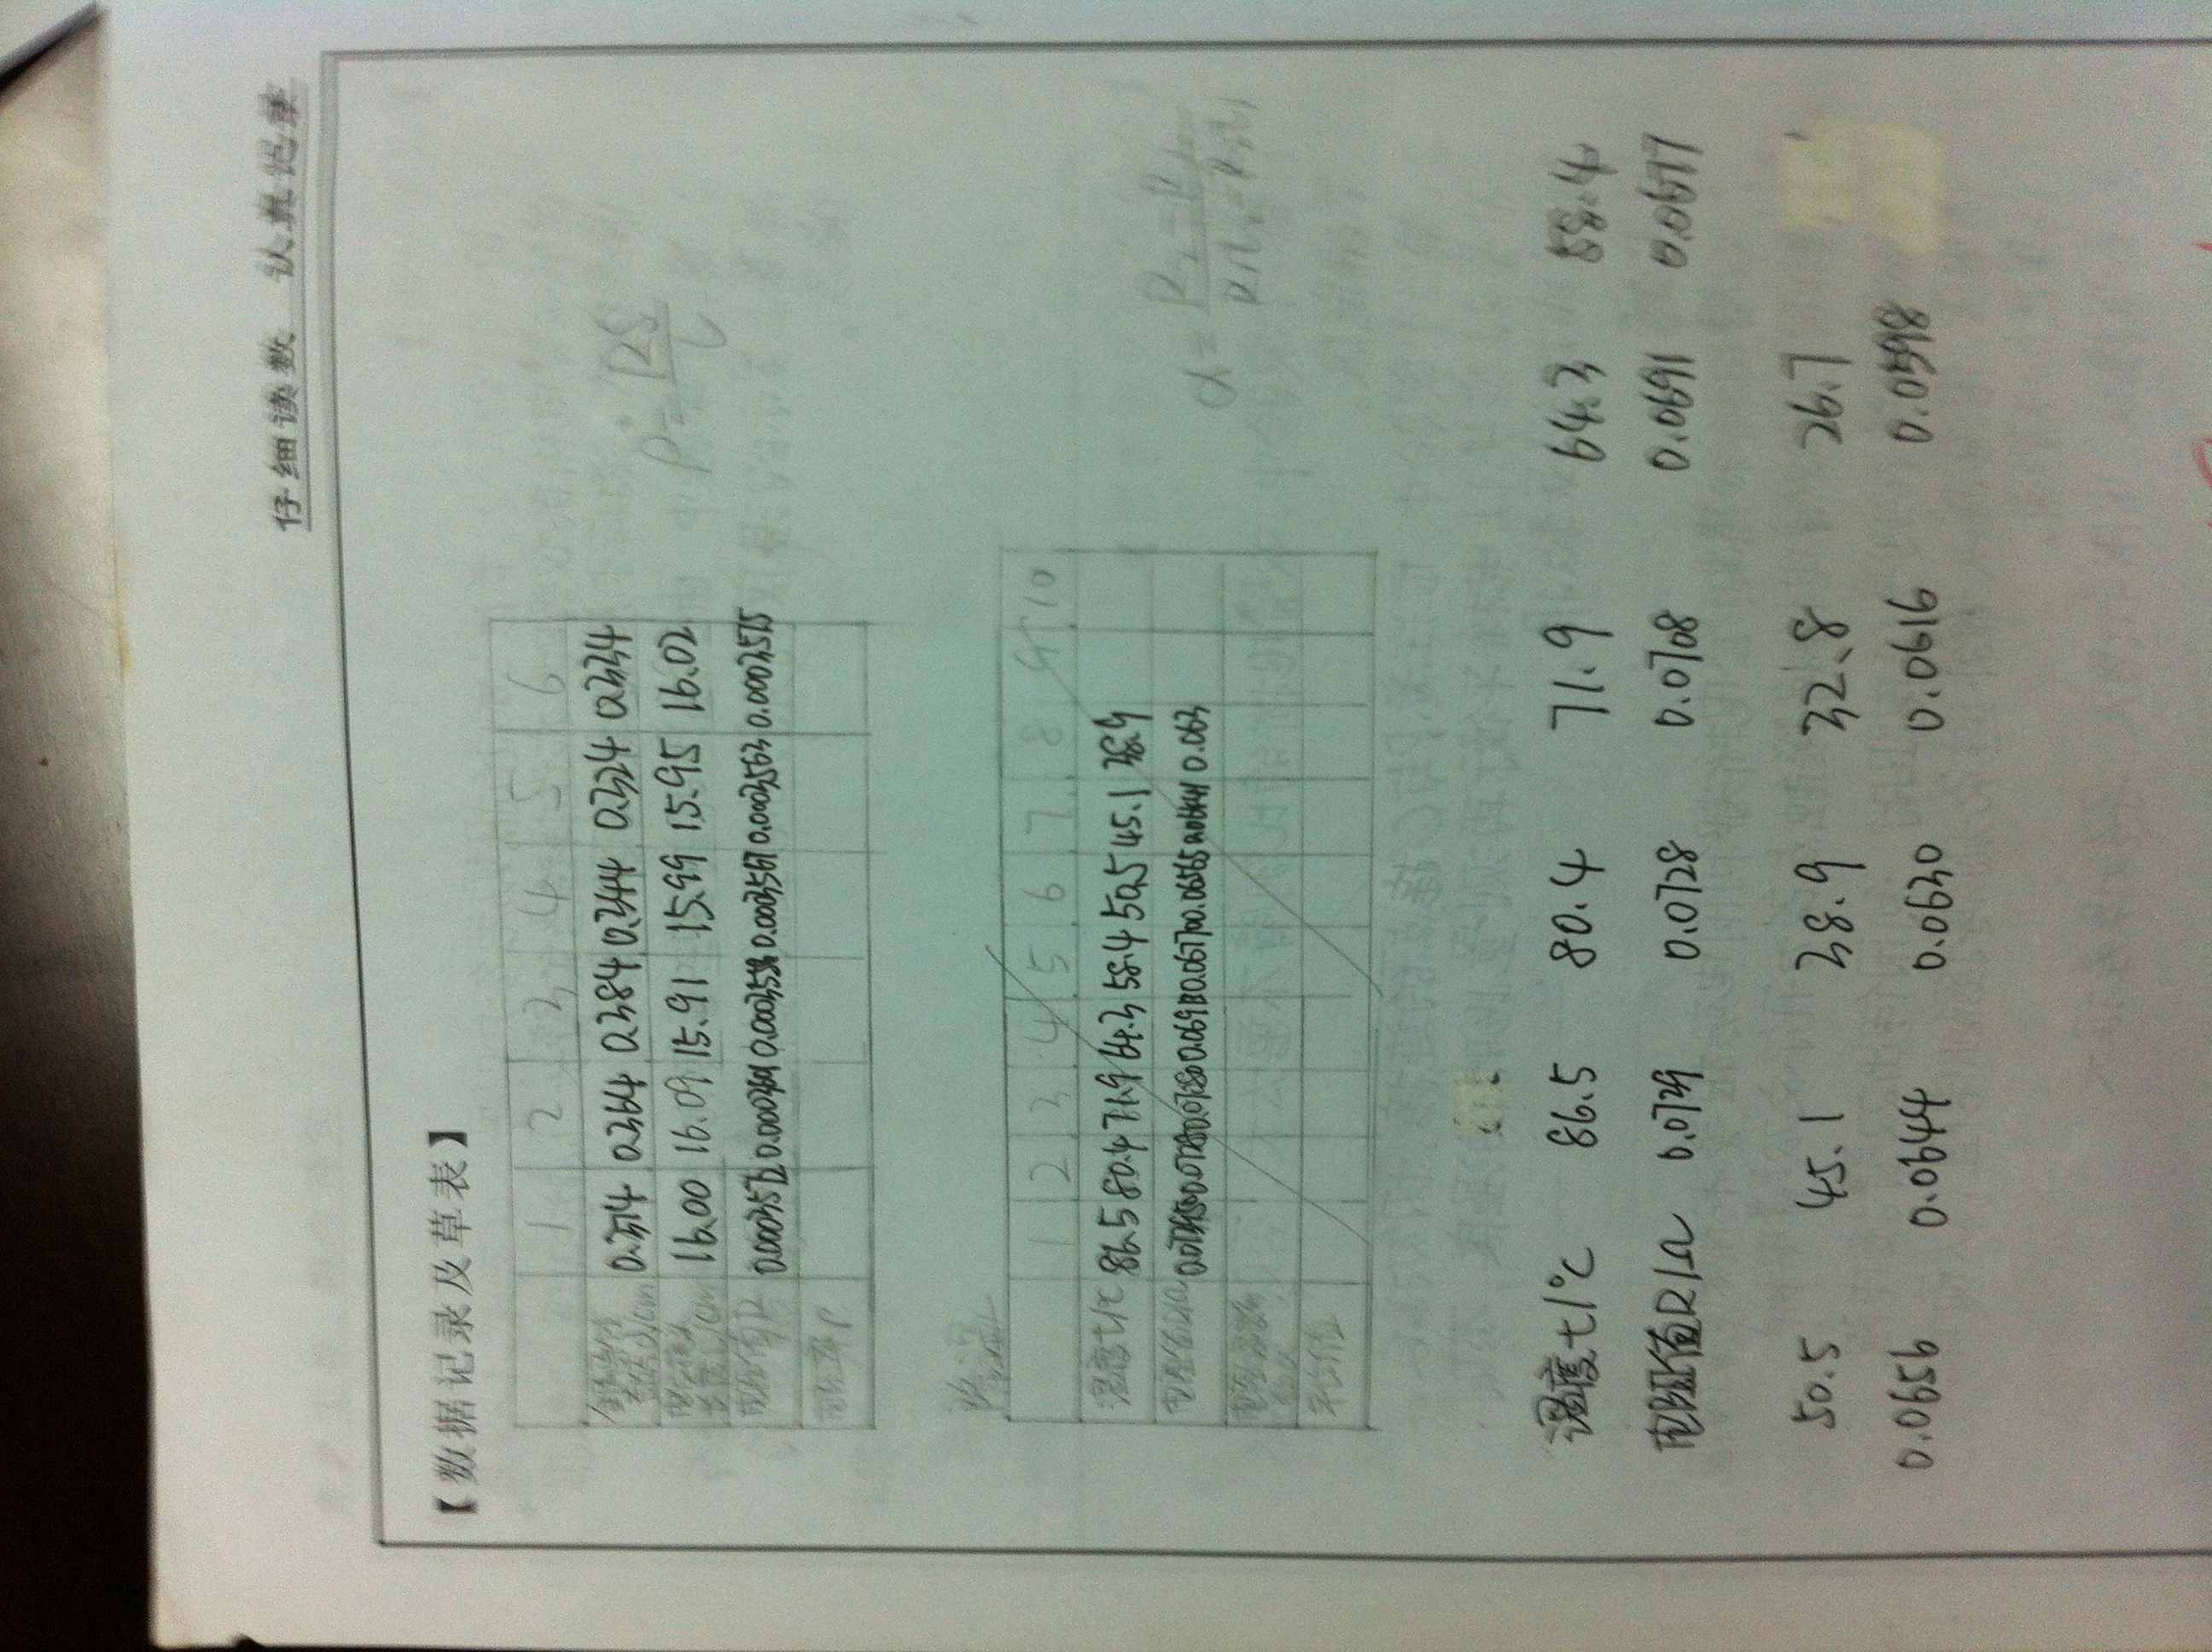 仔细读数 认真记录
【数据记录及草表】
1 2 3 4 5 6
0.374 0.364 0.384 0.344 0.324 0.334
16.00 16.09 15.91 15.99 15.95 16.02
电阻值R 0.0003572 0.0003567 0.0003563 0.0003575
电阻率ρ
ρ=RS/L
降温
1 2 3 4 5 6 7 8 9 10
温度t/℃ 86.5 80.4 71.9 64.3 58.4 50.5 45.1 38.9
电阻值R/Ω 0.0691 0.0677 0.06565 0.06441 0.063
平均值
温度t/℃ 86.5 80.4 71.9 64.3 58.4
电阻值R/Ω 0.0729 0.0728 0.0708 0.0691 0.0677
50.5 45.1 38.9 32.8 26.7
0.0656 0.0644 0.0630 0.0616 0.0598